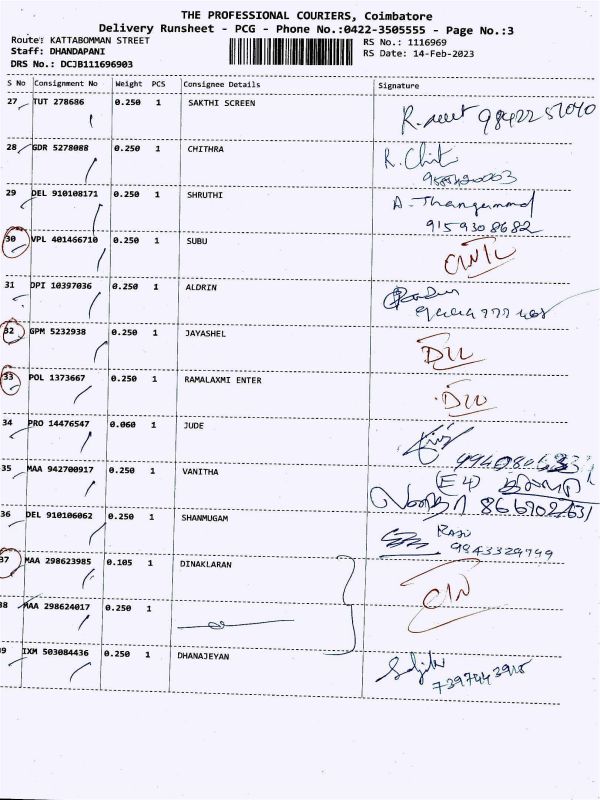 THE PROFESSIONAL COURIERS, Coimbatore
Delivery Runsheet - PCG - Phone No.:0422-3505555 - Page No.:3
Route: KATTABOMMAN STREET
Staff: DHANDAPANI
DRS No.: DCJB111696903
RS No.: 1116969
RS Date: 14-Feb-2023
S No Consignment No Weight PCS Consignee Details Signature
27 TUT 278686 0.250 1 SAKTHI SCREEN
28 GDR 5278088 0.250 1 CHITHRA R. Chit
29 DEL 910108171 0.250 1 SHRUTHI A. Thangammal
9159308682
30 VPL 401466710 0.250 1 SUBU
31 DPI 10397036 0.250 1 ALDRIN
32 GPM 5232938 0.250 1 JAYASHEL
33 POL 1373667 0.250 1 RAMALAXMI ENTER
34 PRO 14476547 0.060 1 JUDE
35 MAA 942700917 0.250 1 VANITHA
(E 4)
36 DEL 910106062 0.250 1 SHANMUGAM
9843329799
37 MAA 298623985 0.105 1 DINAKLARAN
38 MAA 298624017 0.250 1
39 IXM 503084436 0.250 1 DHANAJEYAN